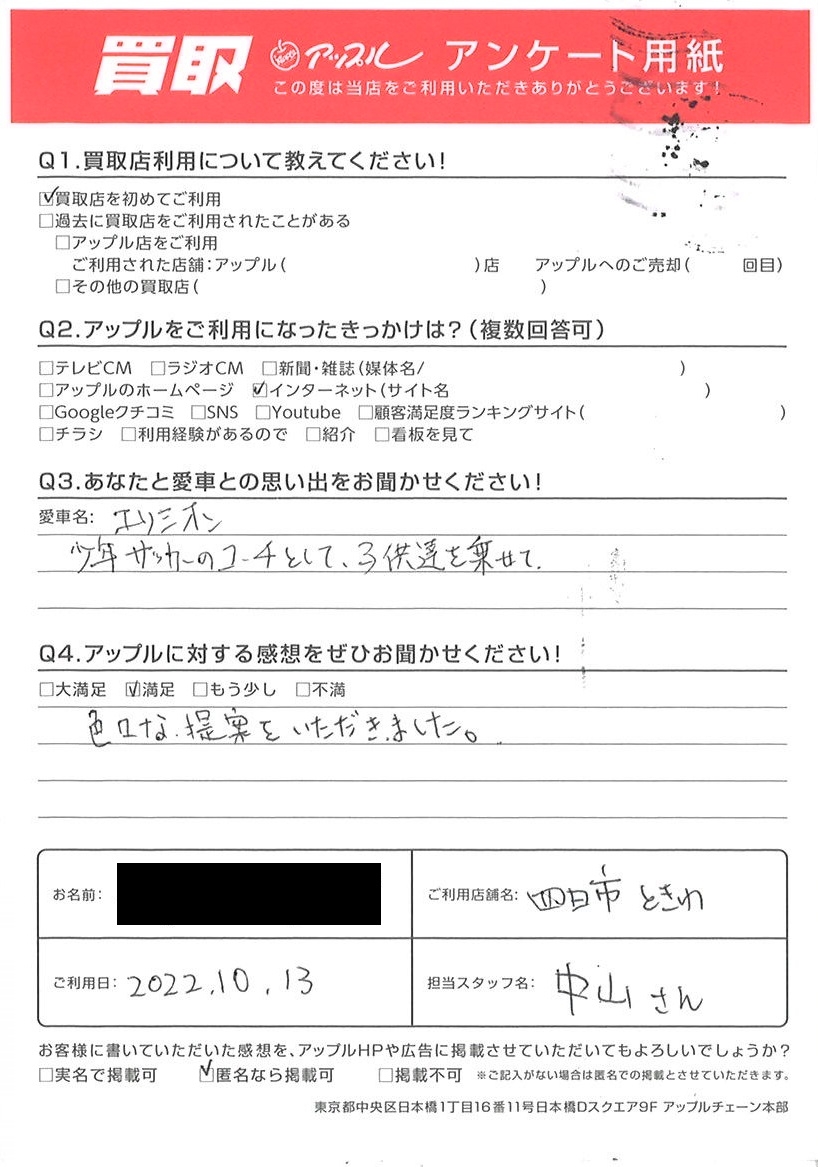 買取 アップル アンケート用紙
この度は当店をご利用いただきありがとうございます!
Q1.買取店利用について教えてください!
☑買取店を初めてご利用
□過去に買取店をご利用されたことがある
□アップル店をご利用
ご利用された店舗:アップル( )店 アップルへのご売却( 回目)
□その他の買取店( )
Q2.アップルをご利用になったきっかけは?(複数回答可)
□テレビCM □ラジオCM □新聞・雑誌(媒体名/ )
□アップルのホームページ ☑インターネット(サイト名 )
□Googleクチコミ □SNS □Youtube □顧客満足度ランキングサイト( )
□チラシ □利用経験があるので □紹介 □看板を見て
Q3.あなたと愛車との思い出をお聞かせください!
愛車名: エリシオン
少年サッカーのコーチとして、子供達を乗せて.
Q4.アップルに対する感想をぜひお聞かせください!
□大満足 ☑満足 □もう少し □不満
色々な提案をいただきました。
お名前:
ご利用店舗名: 四日市ときわ
ご利用日: 2022.10.13
担当スタッフ名: 中山さん
お客様に書いていただいた感想を、アップルHPや広告に掲載させていただいてもよろしいでしょうか?
□実名で掲載可 ☑匿名なら掲載可 □掲載不可 ※ご記入がない場合は匿名での掲載とさせていただきます。
東京都中央区日本橋1丁目16番11号日本橋Dスクエア9F アップルチェーン本部